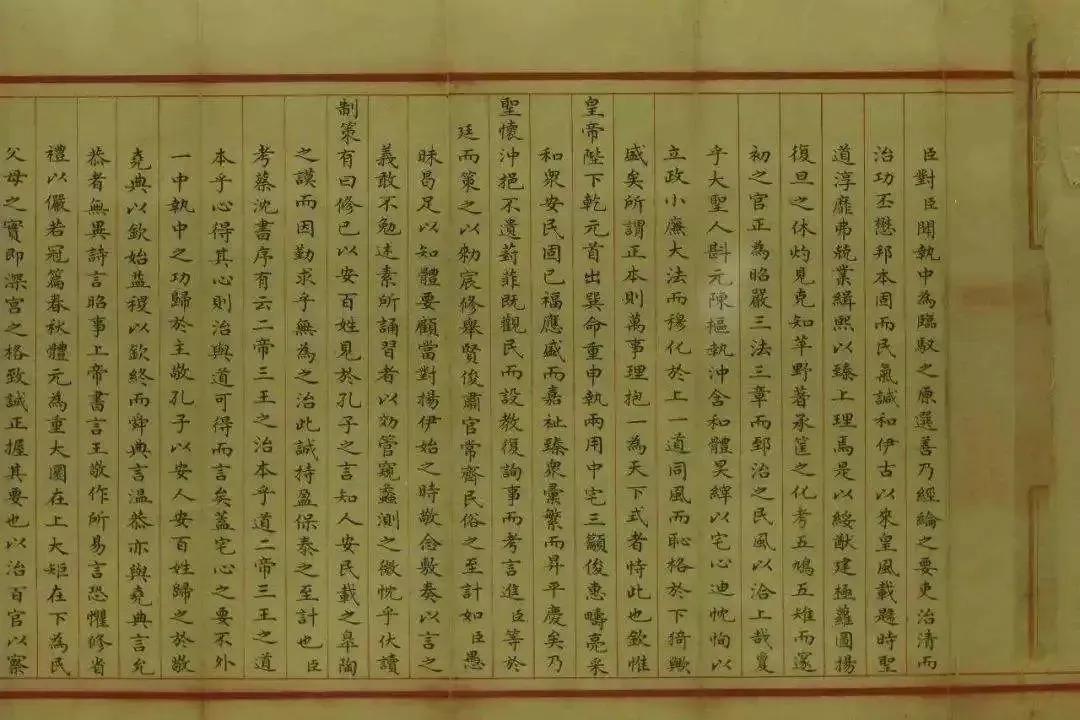 臣對臣聞執中為臨馭之原選善乃經綸之要吏治清而
治功丕懋邦本固而民氣諴和伊古以來皇風載謳時聖
道淳靡弗統業緝熙以臻上理焉是以綏猷建極蘿圖揚
復旦之休灼見克知莘野著承筐之化考五鳩五雉而邃
初之官正為昭嚴三法三章而郅治之民風以洽上哉夐
乎大聖人斟元陳樞執沖含和體昊緯以宅心迪忱恂以
立政小廉大法而穆化於上一道同風而恥格於下猗歟
盛矣所謂正本則萬事理抱一為天下式者恃此也欽惟
皇帝陛下乾元首出巽命重申執兩用中宅三籲俊惠疇亮采
和眾安民固已福應盛而嘉祉臻眾彙繁而昇平慶矣乃
聖懷沖挹不遺葑菲既觀民而設教復詢事而考言進臣等於
廷而策之以勑宸修舉賢俊肅官常齊民俗之至計如臣愚
昧曷足以知體要顧當對揚伊始之時敬念敷奏以言之
義敢不勉述素所誦習者以効管窺蠡測之微忱乎伏讀
制策有曰修己以安百姓見於孔子之言知人安民載之皋陶
之謨而因勤求乎無為之治此誠持盈保泰之至計也臣
考蔡沈書序有云二帝三王之治本乎道二帝三王之道
本乎心得其心則治與道可得而言矣蓋宅心之要不外
一中執中之功歸於主敬孔子以安人安百姓歸之於敬
堯典以欽始益稷以欽終而舜典言溫恭亦與堯典言允
恭者無異詩言昭事上帝書言王敬作所易言恐懼修省
禮以儼若冠篇春秋體元為重大圜在上大矩在下為民
父母之實即深宮之格致誠正握其要也以治百官以察